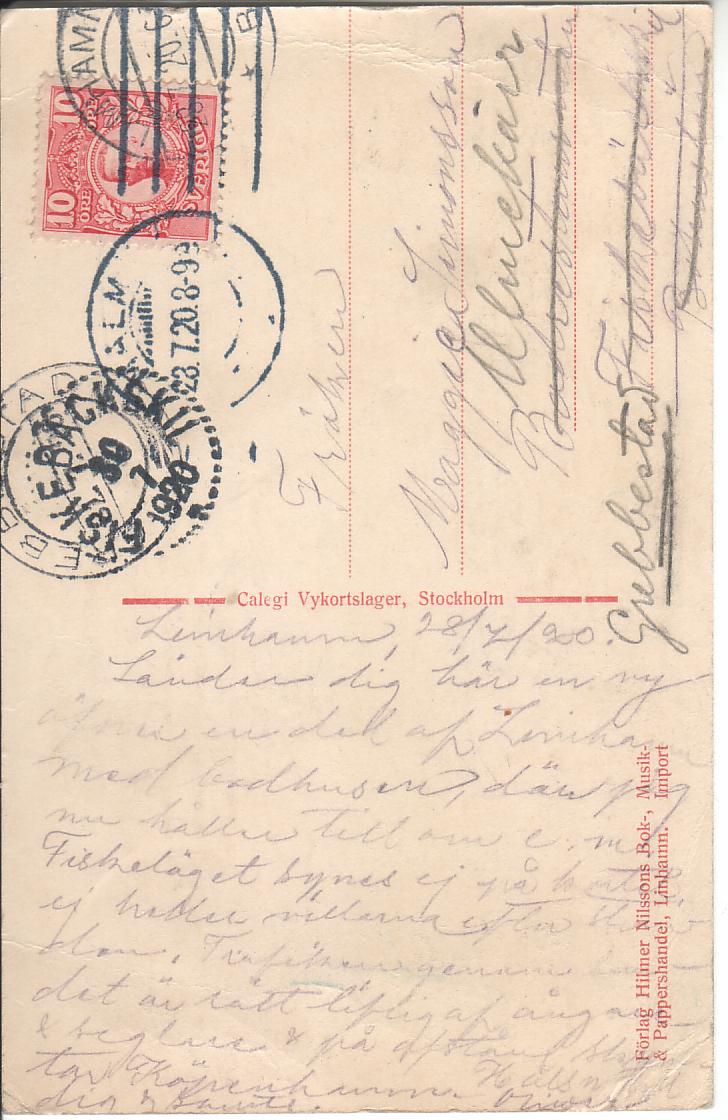 10
ÖRE
10
ÖRE
SVERIGE
MALM
28.7.20.8-9
FISKEBÄCKSKIL
30
7
1920
Fröken
Maggie Simonsson
Ulmekärr
Fiskebäckskil
Grebbestad
Calegi Vykortslager, Stockholm
Limhamn, 28/7/20.
Sänder dig här en vy
öfver en del af Limhamn
med badhusen, där jag
nu håller till om e. m.
Fiskeläget synes ej på kortet
ej heller villorna efter
Trafiken genom
det är rätt liflig af ångare
& seglare & på afstånd
tar Köpenhamn. Hälsn. till
dig &
Förlag Hilmer Nilssons Bok-, Musik-
& Pappershandel, Limhamn. Import